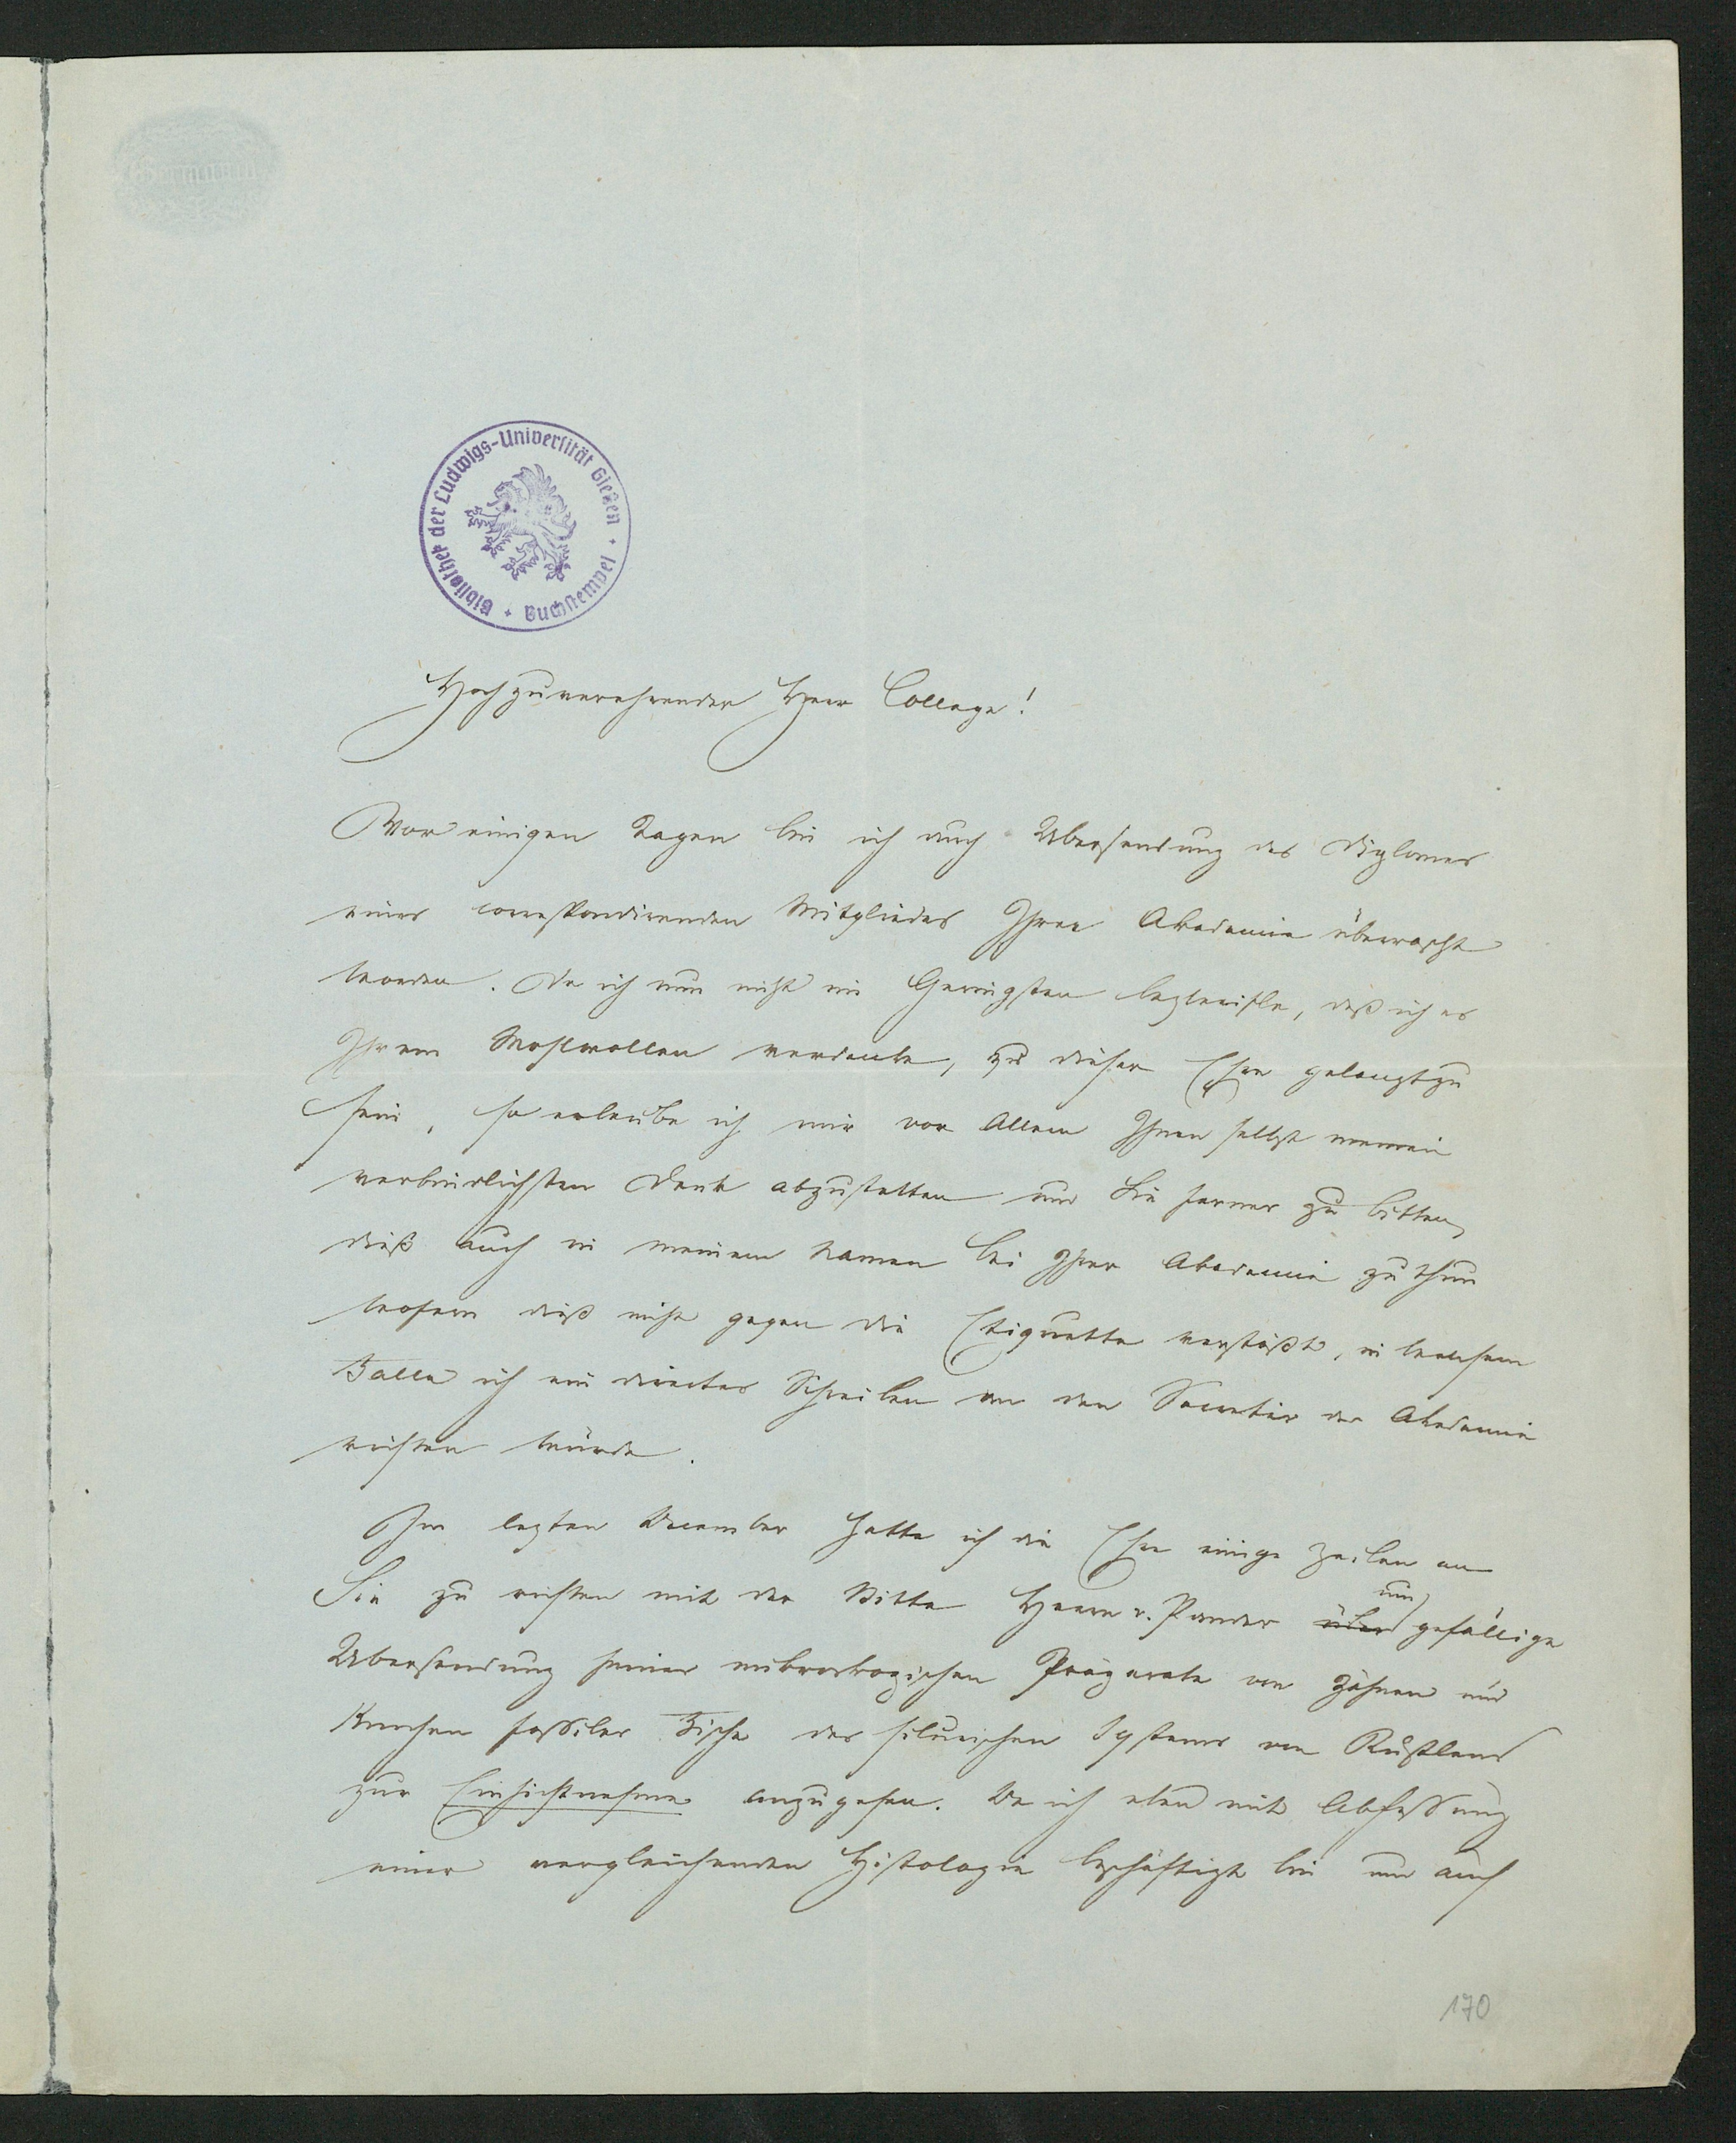 Bibliothek der Ludwigs-Universität Gießen + Buchstempel +
Hochzuverehrender Herr College!
Vor einigen Tagen bin ich durch Übersendung des Diplomes
eines correspondirenden Mitgliedes Ihrer Akademie überrascht
worden. Da ich nun nicht im Geringsten bezweifle, daß ich es
Ihrem Wohlwollen verdanke, zu dieser Ehre gelangt zu
sein, so erlaube ich mir vor Allem Ihnen selbst meinen
verbindlichsten Dank abzustatten und Sie ferner zu bitten,
dieß auch in meinem Namen bei Ihrer Akademie zu thun
wofern dieß nicht gegen die Etiquette verstößt, in welchem
Falle ich ein directes Schreiben an den Secretär der Akademie
richten würde.
Im lezten December hatte ich die Ehre einige Zeilen an
Sie zu richten mit der Bitte Herrn v. Pander über um gefällige
Übersendung seiner mikroskopischen Präparate von Zähnen und
Knochen fossiler Fische des silurischen Systems von Rußland
zur Einsichtnahme anzugehen. Da ich eben mit Abfassung
einer vergleichenden Histologie beschäftigt bin und auch
170